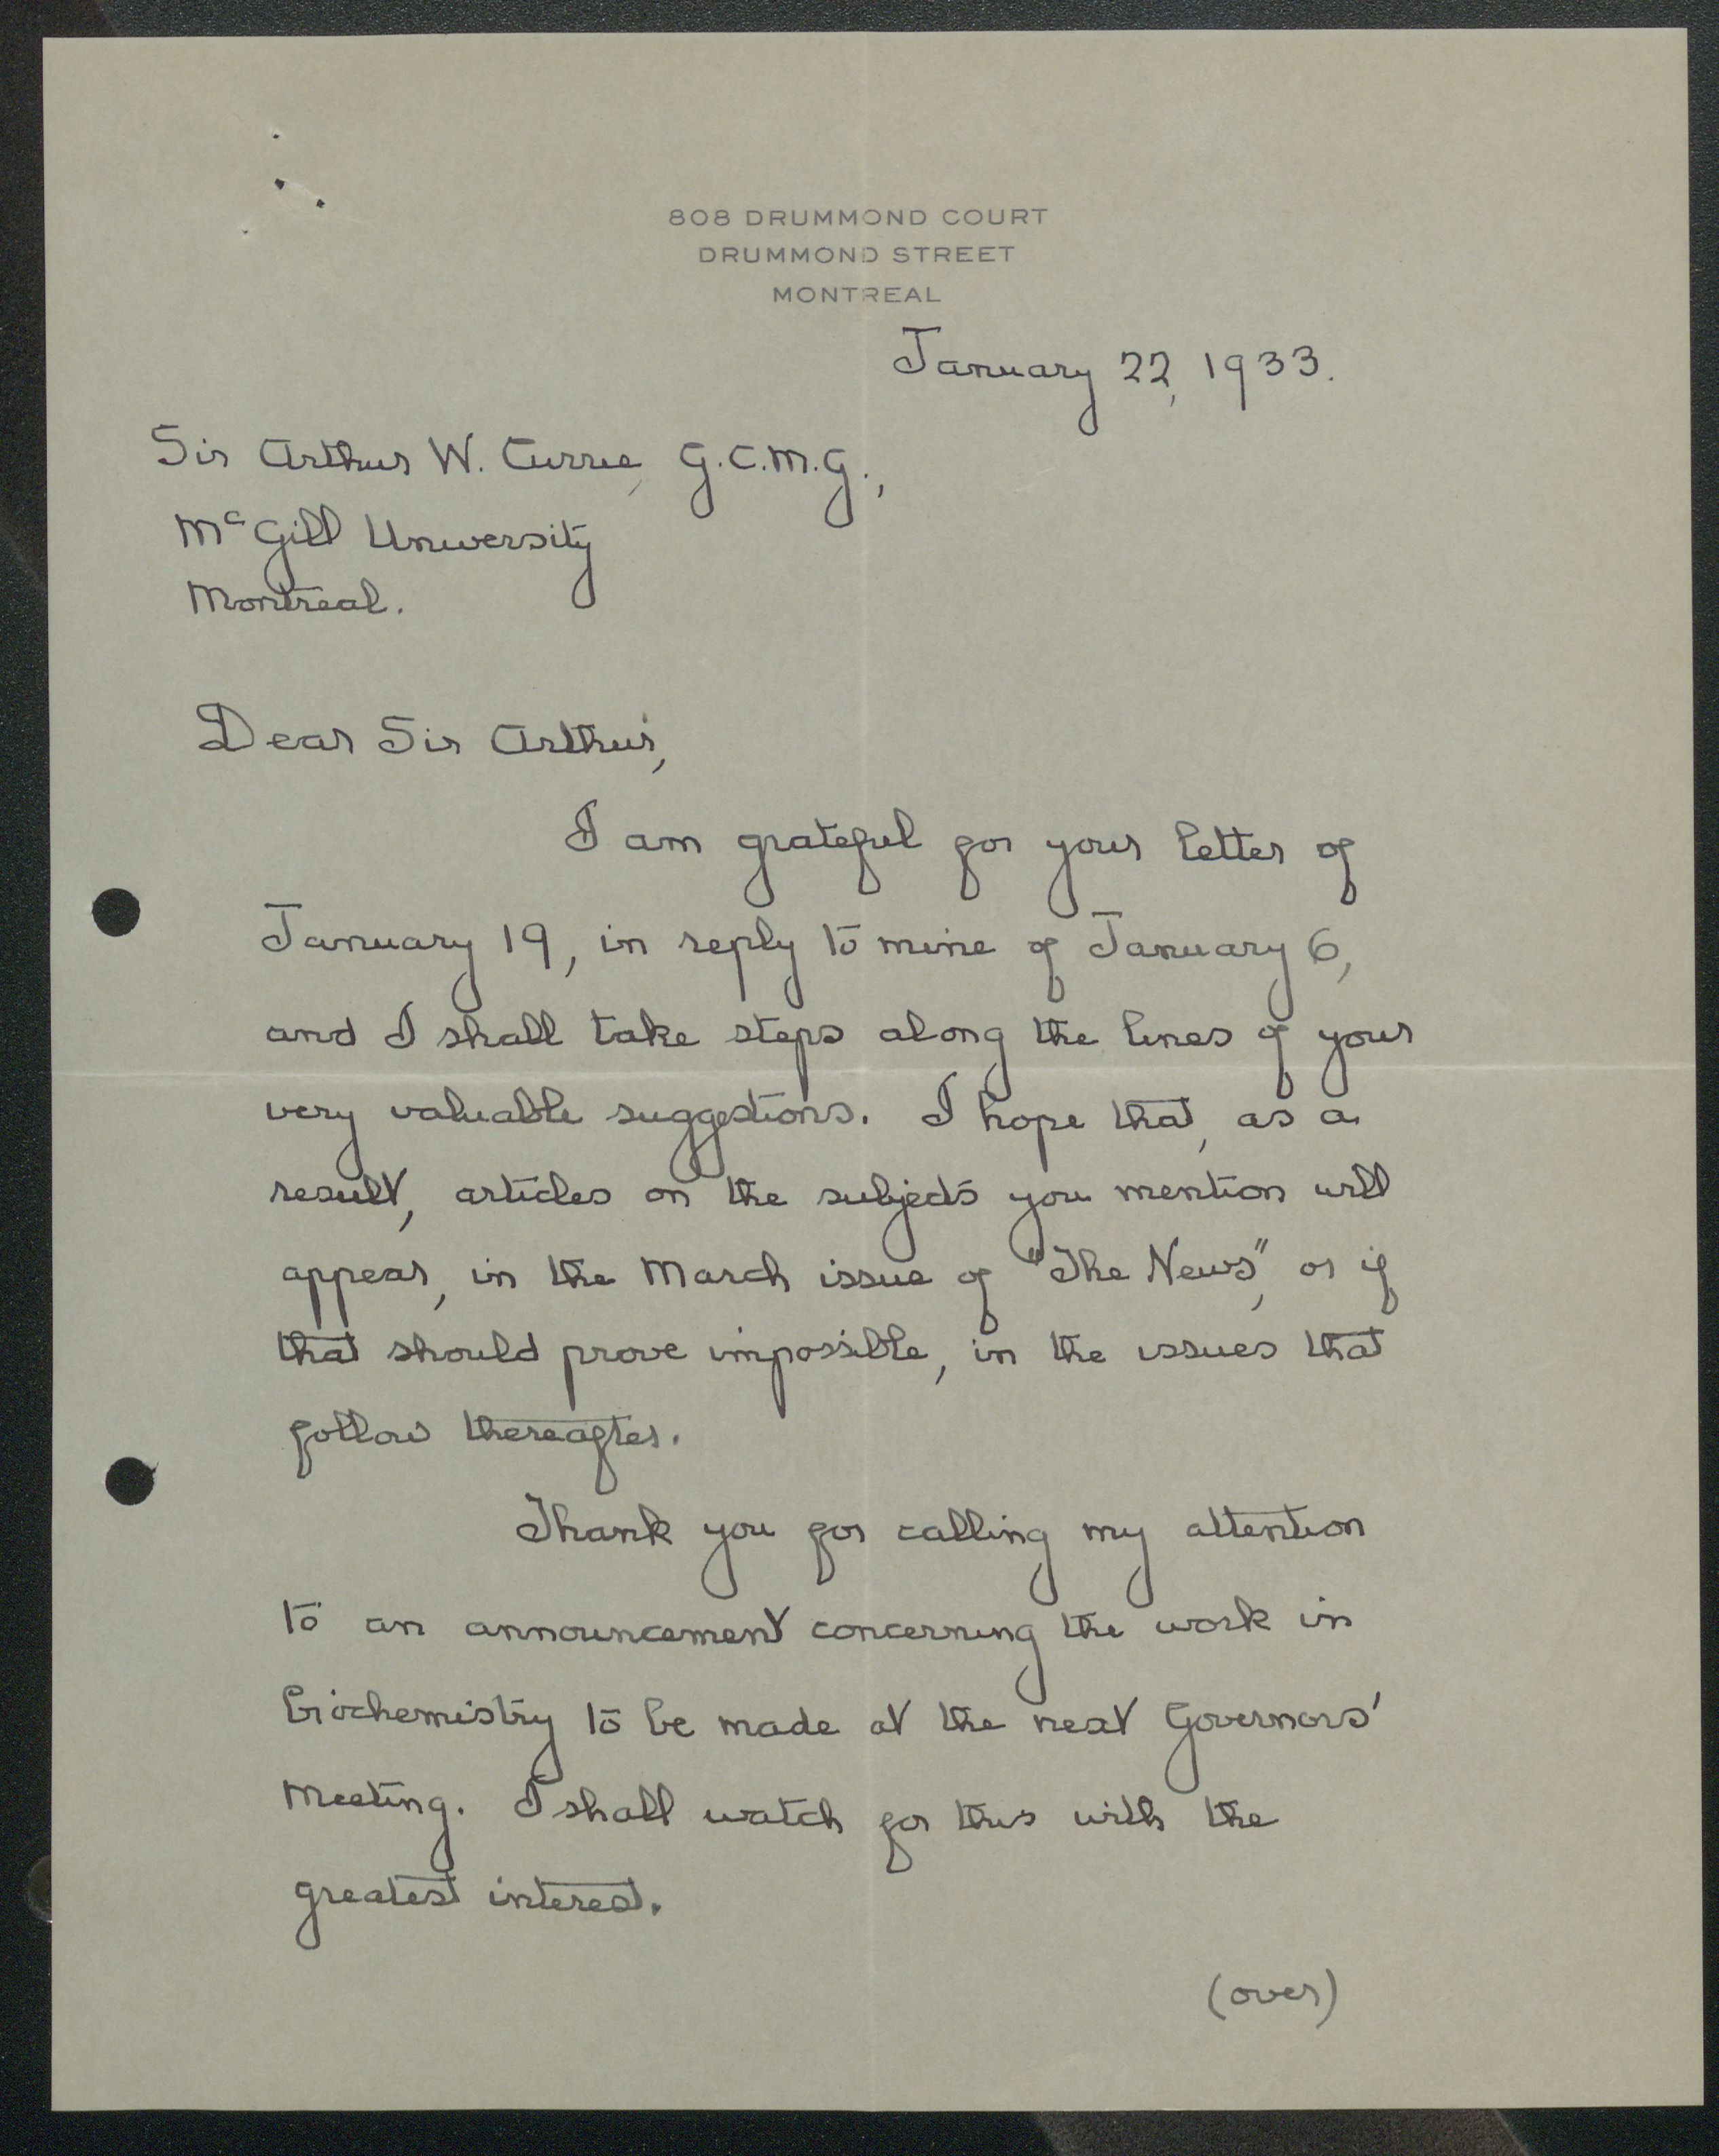 808 DRUMMOND COURT
DRUMMOND STREET
MONTREAL
January 22, 1933.
Sir Arthur W. Currie, G.C.M.G.,
McGill University
Montreal.
Dear Sir Arthur,
I am grateful for your letter of
January 19, in reply to mine of January 6,
and I shall take steps along the lines of your
very valuable suggestions. I hope that, as a
result, articles on the subjects you mention will
appear, in the March issue of "The News", or if
that should prove impossible, in the issues that
follow thereafter.
Thank you for calling my attention
to an announcement concerning the work in
biochemistry to be made at the next Governors'
Meeting. I shall watch for this with the
greatest interest.
(over)